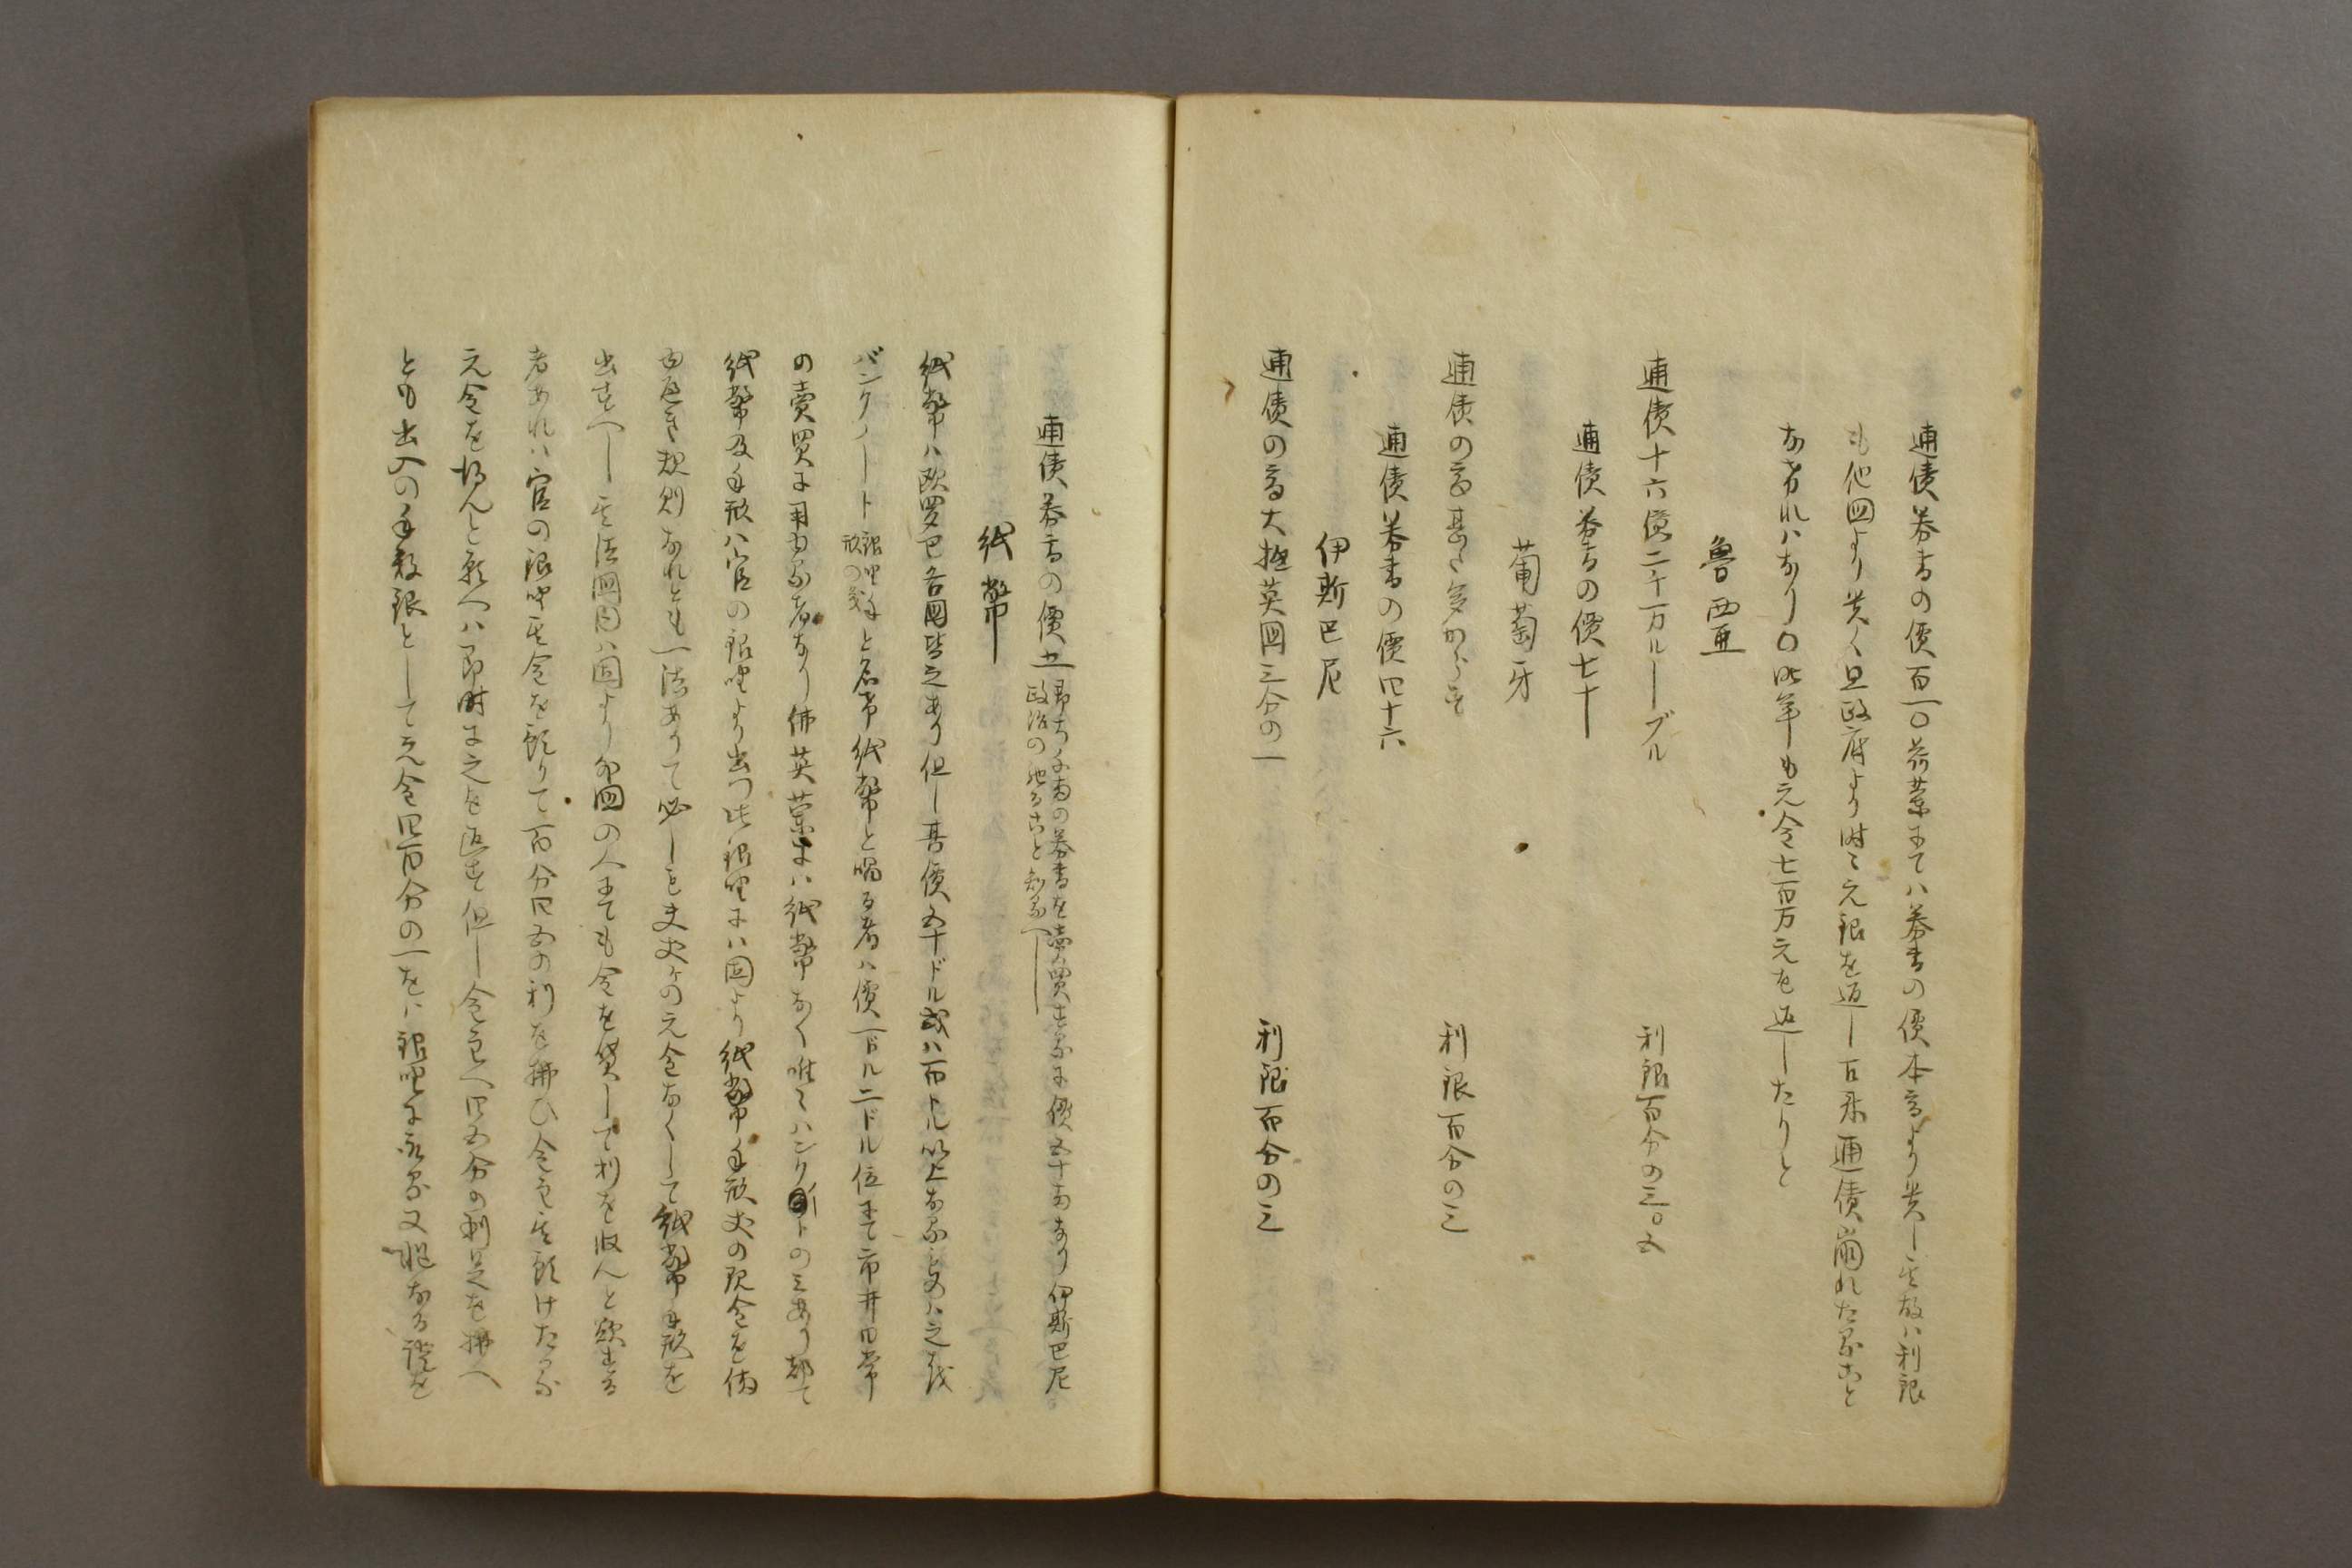 逋債券書の價百一〇荷蘭にてハ券書の價本高より貴し其故ハ利銀
も他國より貴く且政府より時々元銀を返し百年逋債崩れたること
なけれハなり〇昨年も元金七百万元を返したりと
魯西亜
逋債十六億二千万ルーブル 利銀百分の三〇五
逋債券書の價七十
葡萄牙
逋債の高甚た多からす 利銀百分の三
逋債券書の價四十六
伊斯巴尼
逋債の高大抵英國三分の一 利銀百分の三
逋債券書の價五十
即ち百の券書を賣買するに價五十なり伊斯巴尼
政治の
紙幣
紙幣ハ欧羅巴各國皆之あり但し其價五十ドル或ハ百ドル以上なるものハ之を
バンクノート銀舗手形の義と名け紙幣と唱る者ハ價一ドル二ドル位にて市井日常
の賣買に用ゆる者なり佛英蘭にハ紙幣なく唯々ハンクノートのミあり都て
紙幣及手形ハ官の銀舗より出つ此銀舗にハ固より紙幣手形丈の現金を備
ゆへき規則なれとも一法ありて必しも丈夫ケの元金なくして紙幣手形を
出すへし其法國内ハ固より外國の人にても金を貸して利を收んと欲する
者あれハ官の銀舗其金を預りて百分四五の利を拂ひ金主其預けたる
元金を得んと願へハ即時に之を返す但し金主へ四五分の利足を拂へ
とも出入の手数銀として元金四百分の一をハ銀舗に取る又慥なる證を